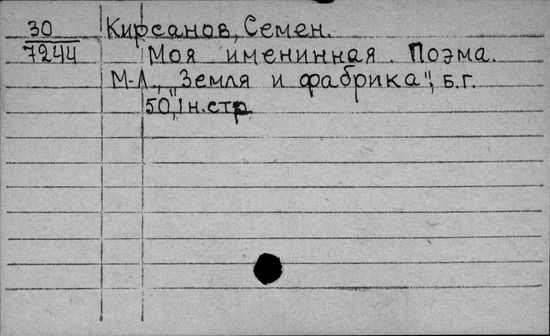 30 Кирсанов, Семен.
7244 Моя именинная. Поэма.
М-Л., "Земля и фабрика", б.г.
50, 1 н.стр.